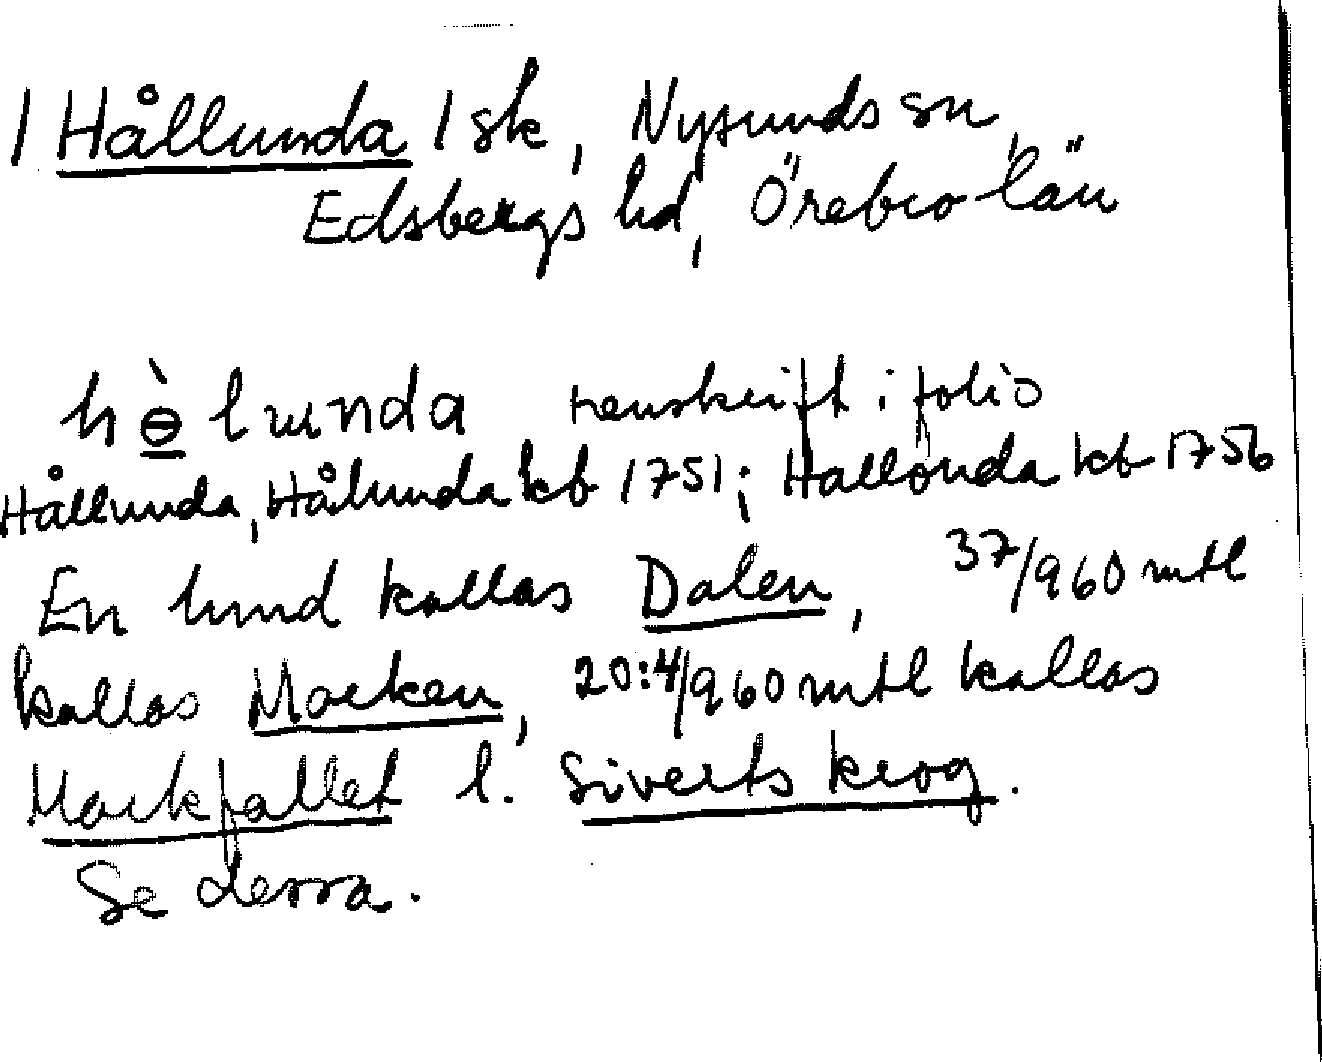 1 Hållunda 1 sk, Nysunds sn,
Edsbergs hd, Örebro län
hɵ̀lunda renskrift i folio
Hållunda, Hålunda kb 1751; Hallonda kb 1756
En lund kallas Dalen, 37/960 mtl
kallas Marken, 20:4/960 mtl kallas
Markfallet l. Siverts krog.
Se dessa.